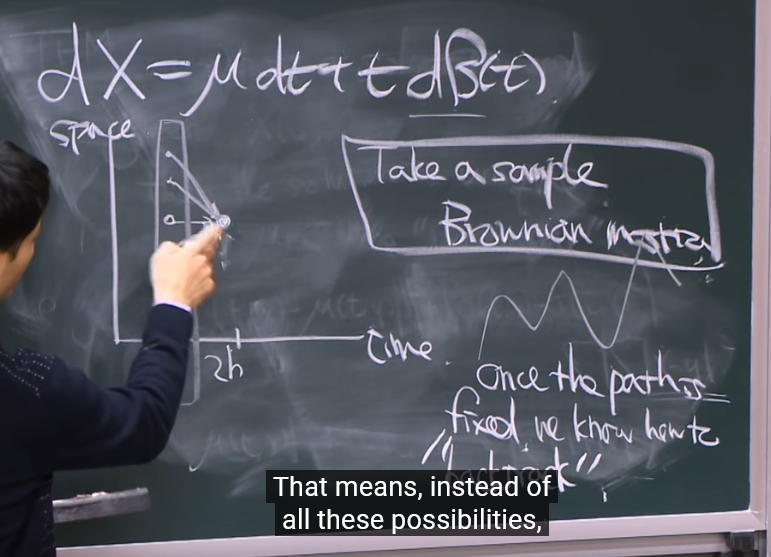 dX = μ dt + t dB(t)
space
Take a sample
Brownian
time
2h
Once the path is
fixed, we know how to
"backtrack"
That means, instead of
all these possibilities,